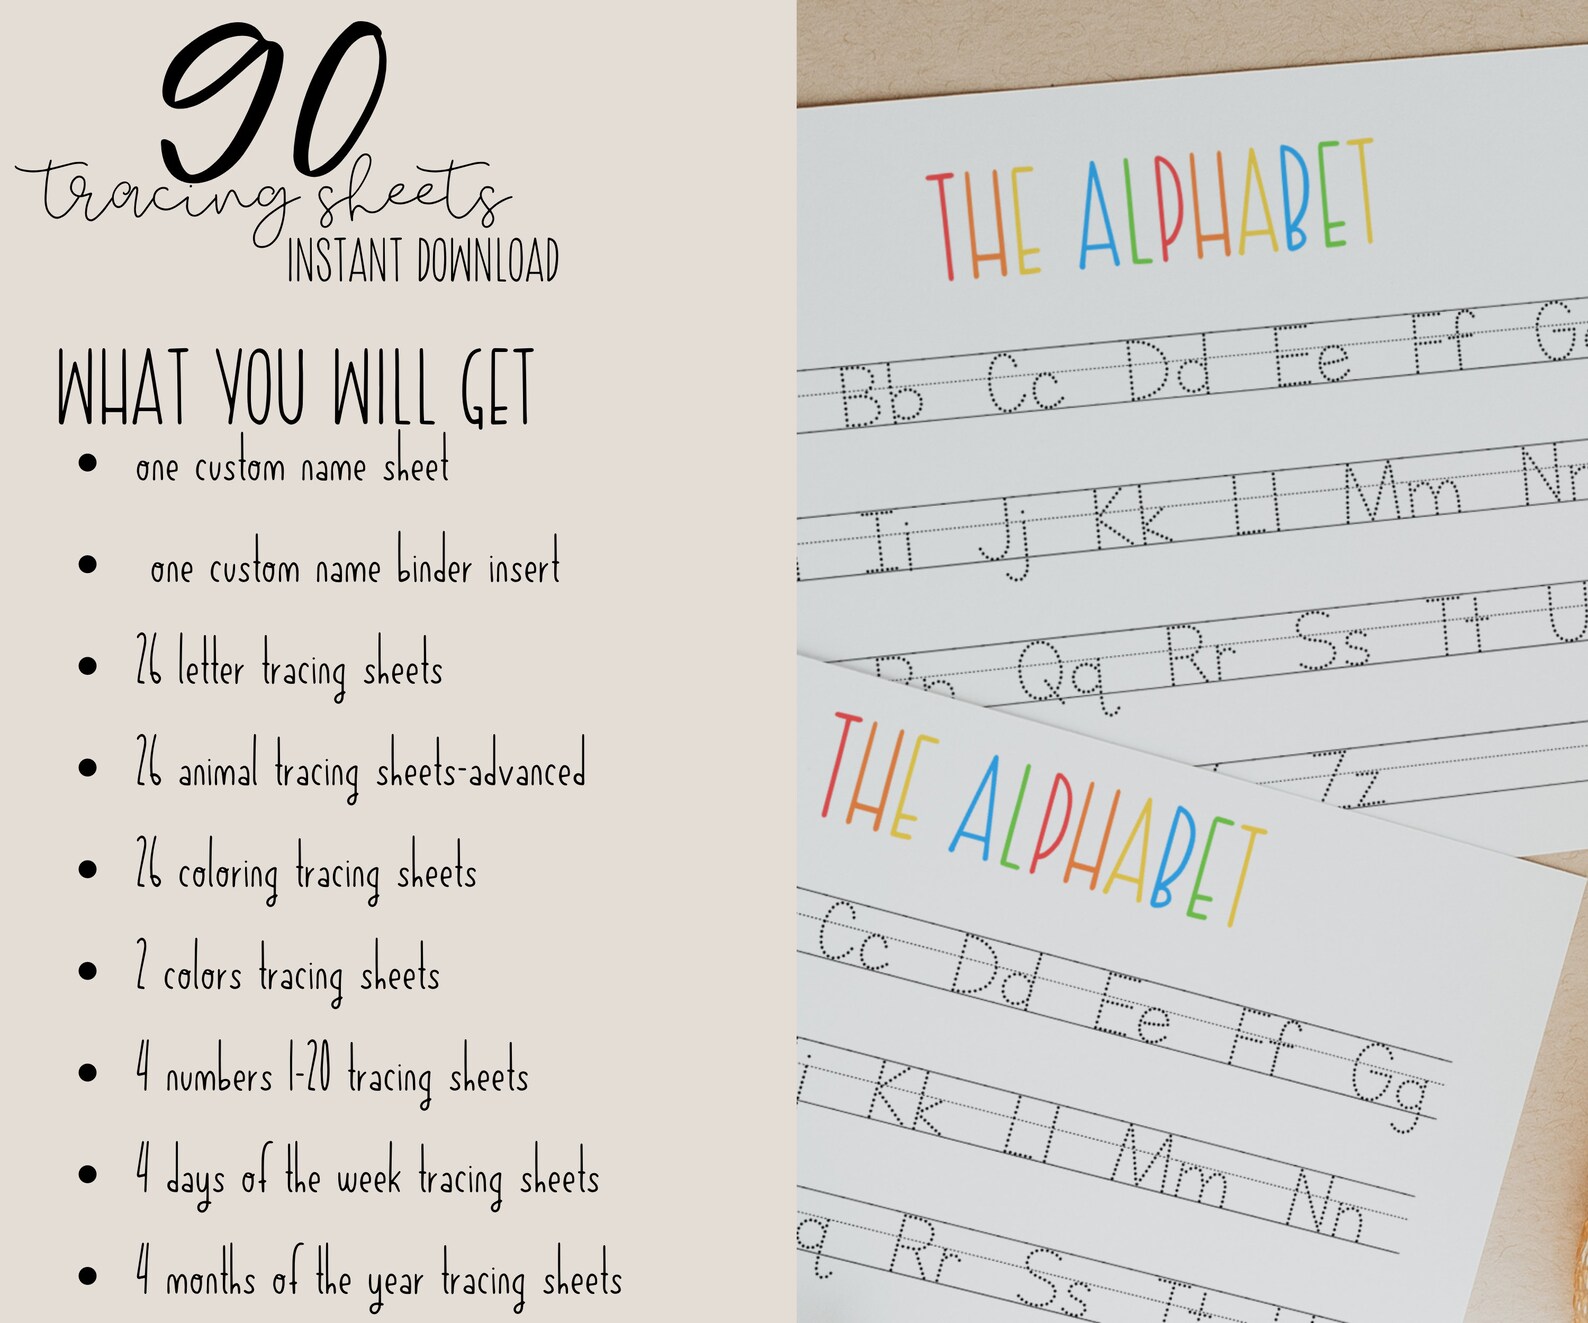 90
tracing sheets
INSTANT DOWNLOAD
WHAT YOU WILL GET
• one custom name sheet
• one custom name binder insert
• 26 letter tracing sheets
• 26 animal tracing sheets-advanced
• 26 coloring tracing sheets
• 2 colors tracing sheets
• 4 numbers 1-20 tracing sheets
• 4 days of the week tracing sheets
• 4 months of the year tracing sheets
THE ALPHABET
Bb Cc Dd Ee Ff G
Ii Jj Kk Ll Mm Nn
Pp Qq Rr Ss Tt U
Zz
THE ALPHABET
Cc Dd Ee Ff Gg
j Kk Ll Mm Nn
q Rr Ss Tt